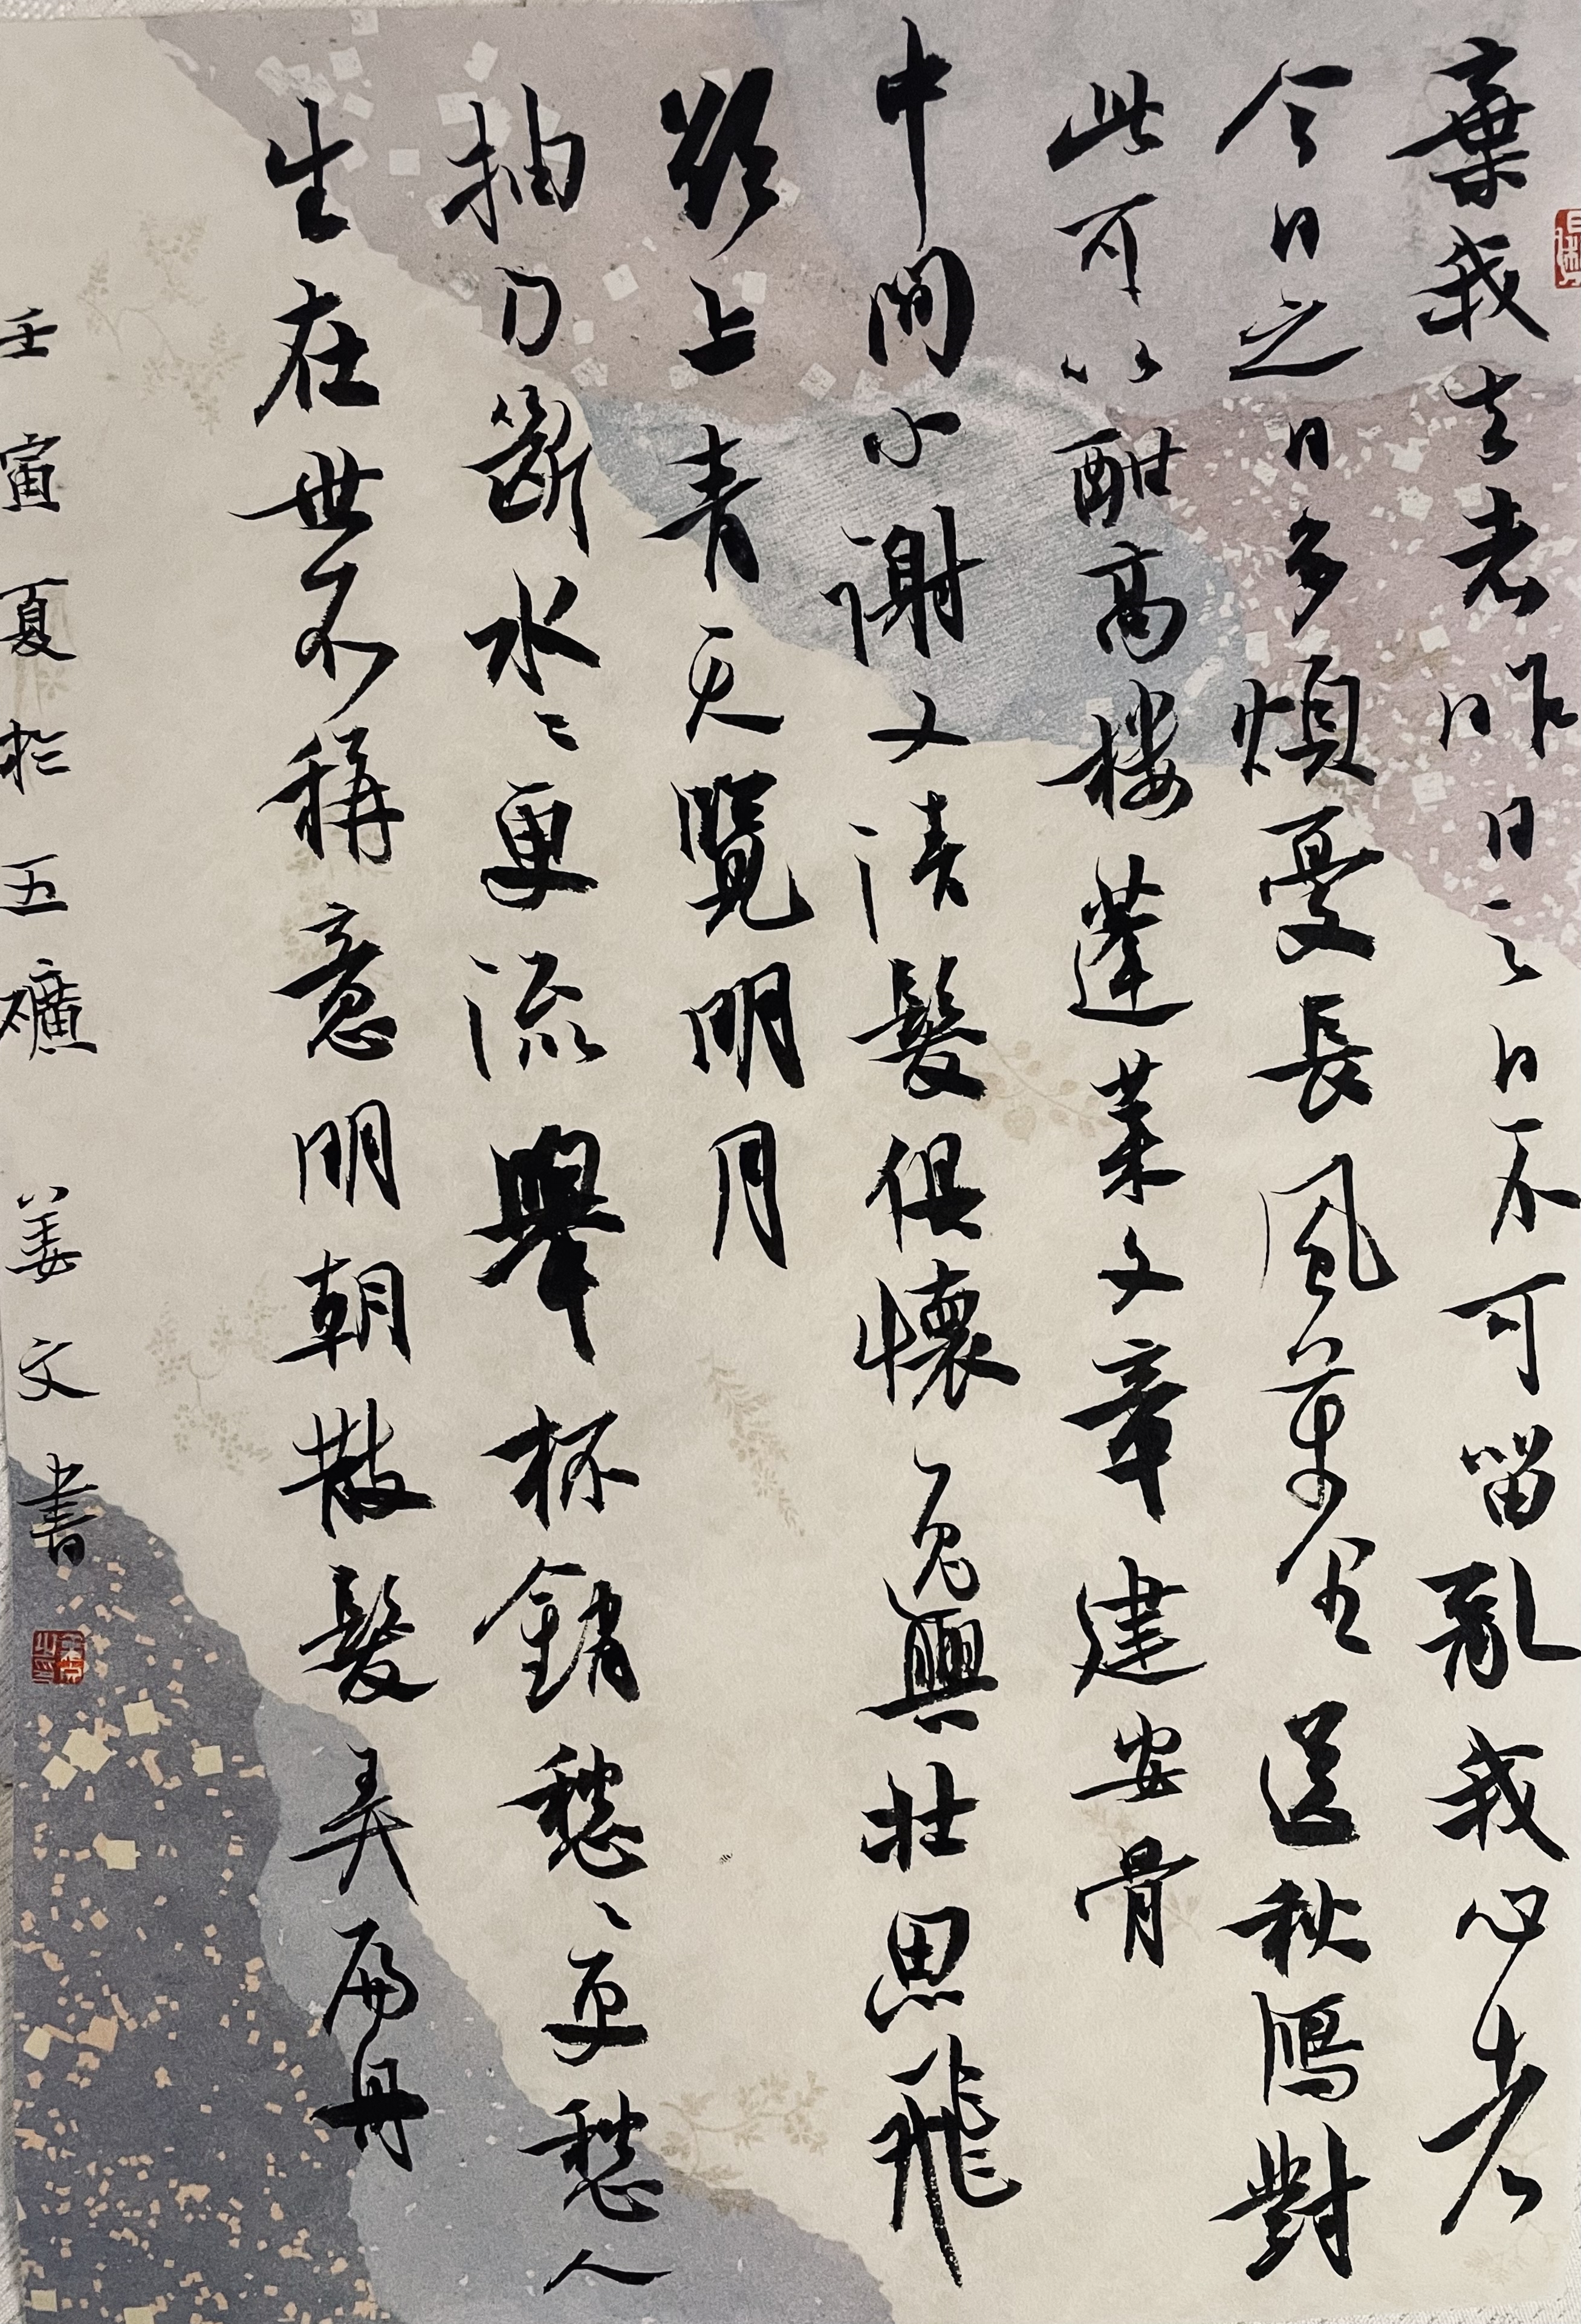 棄我去者昨日之日不可留亂我心者
今日之日多煩憂長風萬里送秋鴈對
此可以酣高樓蓬萊文章建安骨
中間小謝又清發俱懷逸興壯思飛
欲上青天覽明月
抽刀斷水〻更流舉杯銷愁〻更愁人
生在世不稱意明朝散髮弄扁舟
壬寅夏於五礦 姜文書